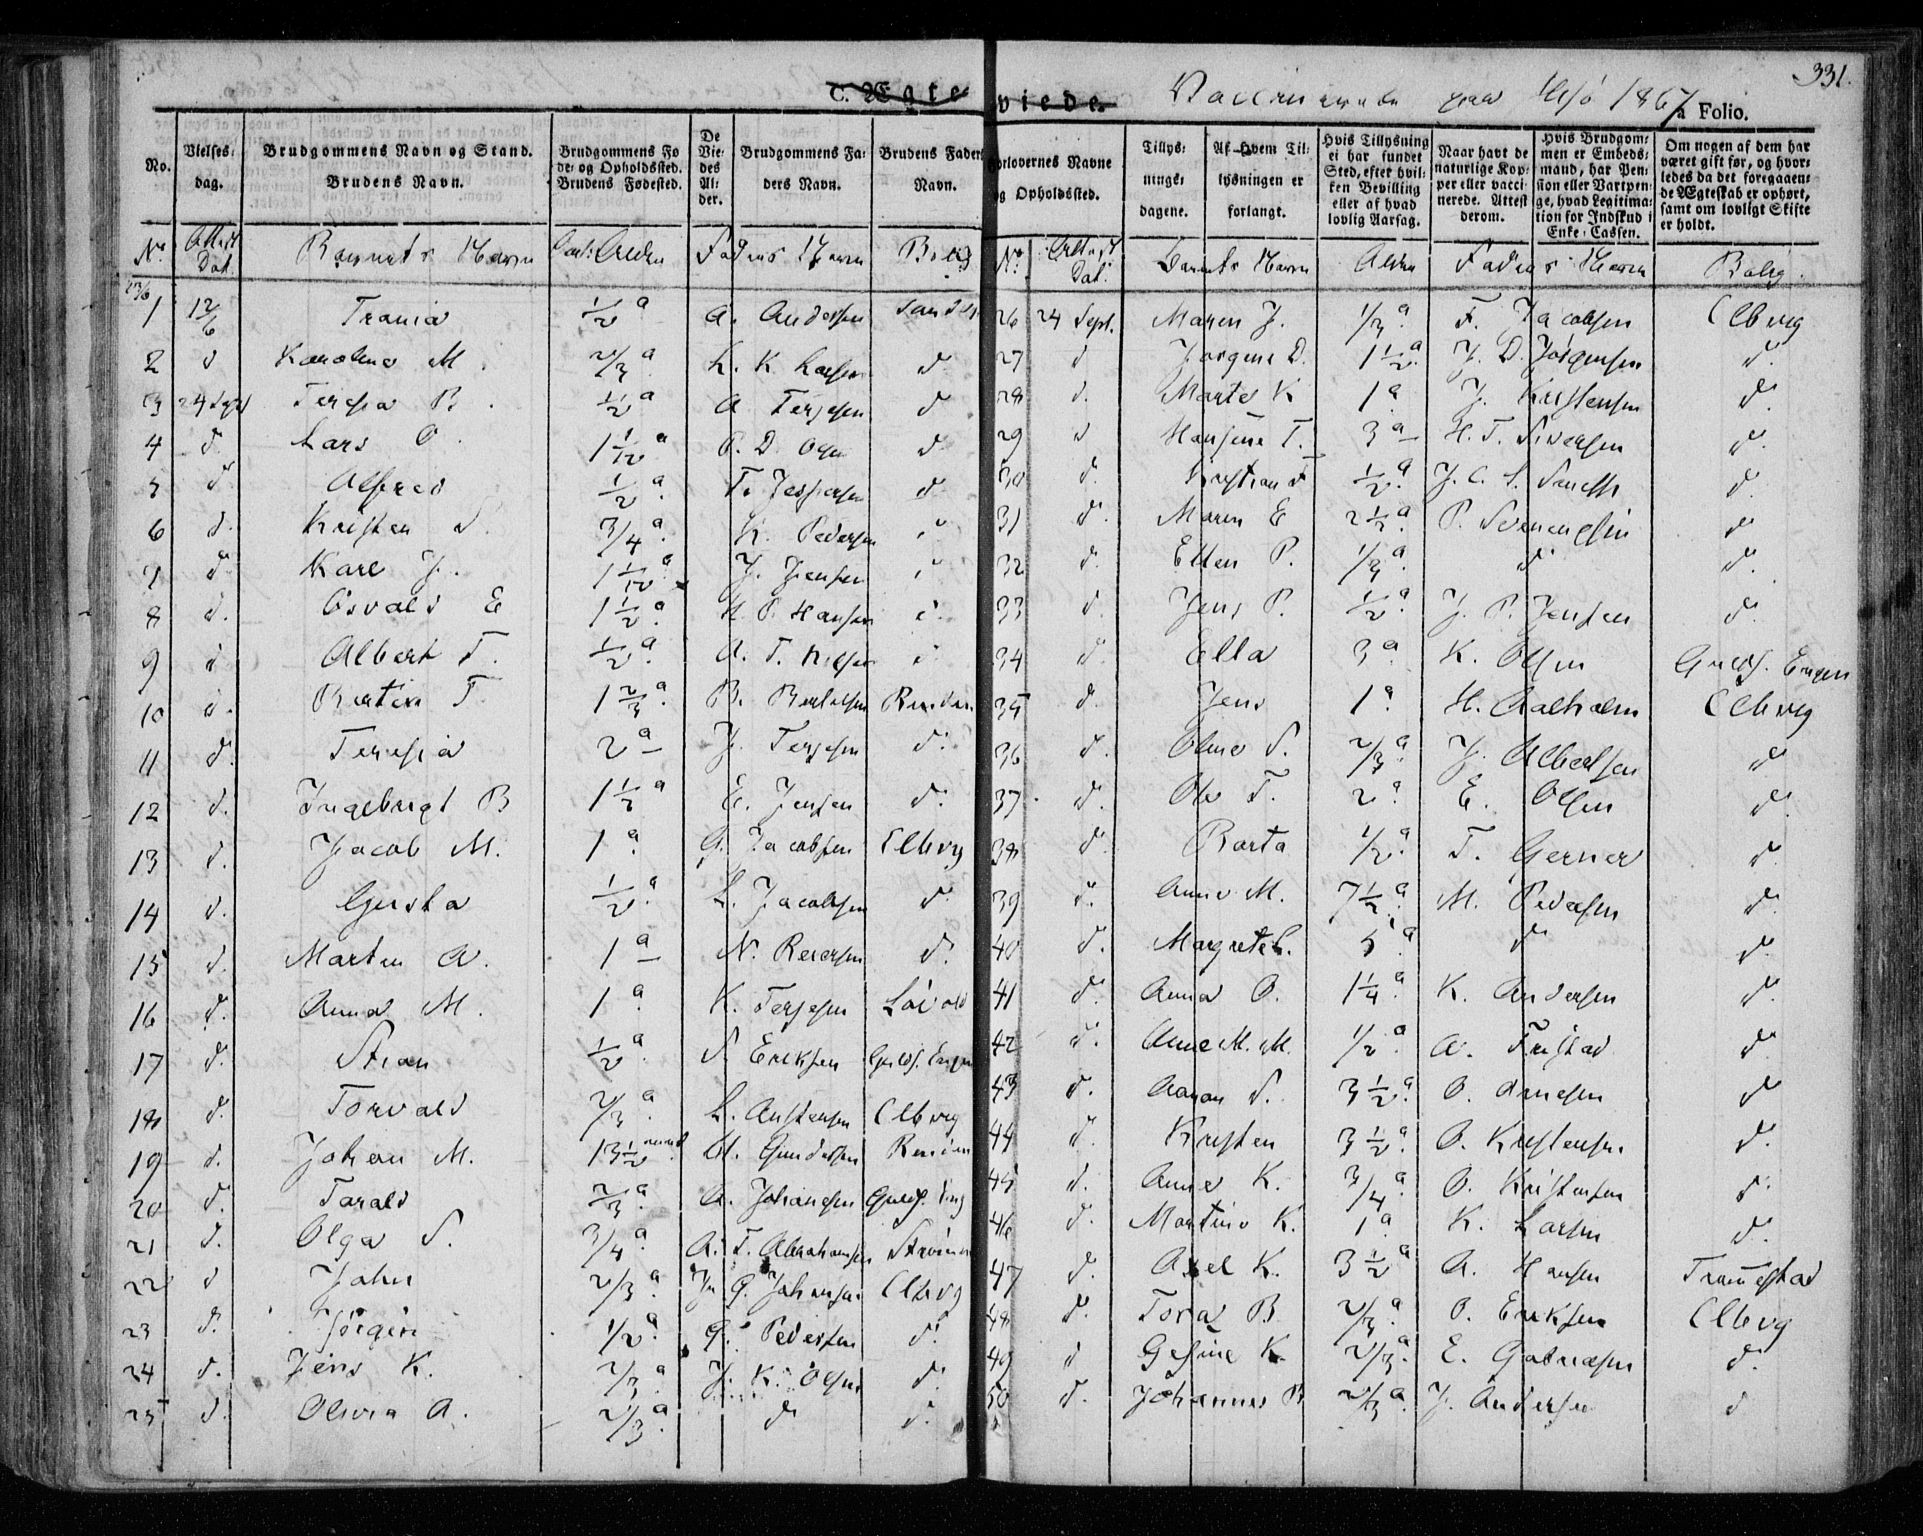 331.
C. Ægteviede.
Vaccinerede paa 1867
a Folio.
No.
Vielses-dag.
Brudgommens Navn og Stand. Brudens Navn.
Brudgommens Fode- og Opholdssted. Brudens Fødested.
De Viedes Alder.
Brudgommens Faders Navn.
Brudens Faders Navn.
Forlovernes Navne og Opholdssted.
Tillysningsdagene.
Af Hvem Tillysningen er forlangt.
Hvis Tillysning ei har fundet Sted, efter hvilken Bevilling eller af hvad lovlig Aarsag.
Naar havt de naturlige Kopper eller vaccinerede. Attest derom.
Hvis Brudgommen er Embedsmand, har Pension eller Vartpenge, hvad Legitimation for Indskud i Enke-Cassen.
Om nogen af dem har været gift før, og hvorledes da det foregaaende Ægteskab er ophørt, samt om lovligt Skifte er holdt.
No. Attest Dat. Barnets Navn Alder Faders Navn Bolig
1 12/6 Trania 1/2 a A. Andersen Sandø
2 d Karoline M. 2/3 a L. K. Larsen d
3 24 Sept Teresia B. 1/2 a A Terjesen d
4 d. Lars O. 1 1/12 a P. D. Olsen d
5 d Alfred 1/2 a T. Jespersen d
6 d. Kristen S. 3/4 a K. Pedersen d
7 d Karl J. 1 1/12 a J. Jensen d
8 d. Osvald E 1 1/2 a H. P. Hansen d
9 d Albert T. 1/2 a A. T. Nilsen d
10 d. Bertin T. 1 2/3 a B. Bertelsen
11 d. Teresia 2 a J. Terjesen d.
12 d. Ingebregt B 1 1/2 a E. Jensen d.
13 d. Jacob M. 1 a G. Jacobsen Elbvig
14 d. Gusta 1/2 a L. Jacobsen d
15 d. Marten A. 1 a N. Reiersen d.
16 d. Anna M. 1 a K. Terjesen Løvold
17 d. Stian 1/2 a S Eriksen Gulds. Engen
18 d. Torvald 2/3 a L. Austensen Elbvig
19 d. Johan M. 13 1/2 H. Gundersen
20 d. Tarald 2/3 a A. Johansen Gulds. Eng
21 d. Olga S. 3/4 a A. T. Abrahamsen
22 d John 2/3 a J. G. Johnsen Elbvig
23 d. Jörgen 1/2 a G. Pedersen d.
24 d. Jens K. 2/3 a J. K. Olsen d.
25 d. Olivia A. 2/3 a d d.
No. Attest Dat. Barnets Navn Alder Faders Navn Bolig.
26 24 Sept. Maren J. 1/3 a F. Jacobsen Elbvig
27 d Jorgine D. 1 1/2 a J. D. Jörgensen d.
28 d. Marte K 1 a J. Kristensen d.
29 d Hansine T. 3 a H. T. Siversen d.
30 d. Kristian F 1/2 a J. C. S. d.
31 d. Maren E 2 1/2 a P. Svenningsen d
32 d. Ellen P. 1/3 a d d.
33 d. Jens P. 1/2 a J. P. Jensen d.
34 d. Ella 3 a K. Olsen Gulds. Engen
35 d. Jens 1 a H. Aalholm Elbvig
36 d. Oline S. 2/3 a J. Albertsen d
37 d. Ole T. 2 a E. Olsen d.
38 d. Barta 1/2 a T. Gerner d.
39 d. Anne M. 7 1/2 a M. Pedersen d.
40 d. Margrete C. 5 a d d.
41 d. Anna O. 1 1/4 a K. Andersen d.
42 d. Anne M. M. 1/2 a A. Fristad d.
43 d. Aanon S. 3 1/2 a O. Arnesen d
44 d. Kristen 3 1/2 a O. Kristensen d.
45 d. Anne K. 3/4 a O. Kristensen d.
46 d. Martine K. 1 a K. Larsen d.
47 d. Axel K. 3 1/2 a A. Hansen Tromestad
48 d. Tora B 2/3 a O. Eriksen Elbvig
49 d Gesine K. 2/3 a E. Gabrielsen d.
50 d. Johannes B 2/3 a J. Andersen d